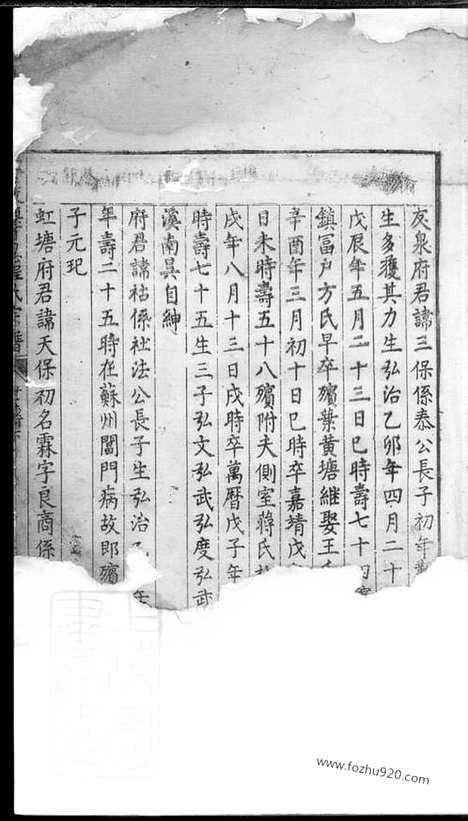 友泉府君諱三保係泰公長子初年
生多獲其力生弘治乙卯年四月二十
戊辰年五月二十三日巳時壽七十四
鎮冨户方氏早卒殯葉黄塘継娶王
辛酉年三月初十日巳時卒嘉靖戊
日未時壽五十八殯附夫側室蔣氏
戌年八月十三日戌時卒萬暦戊子年
時壽七十五生三子弘文弘武弘度弘武
溪南吴自紳
府君諱祜係社法公長子生弘治
年壽二十五時在蘇州閶門病故即殯
子元玘
虹塘府君諱天保初名霖字良商係
www.fozhu920.com